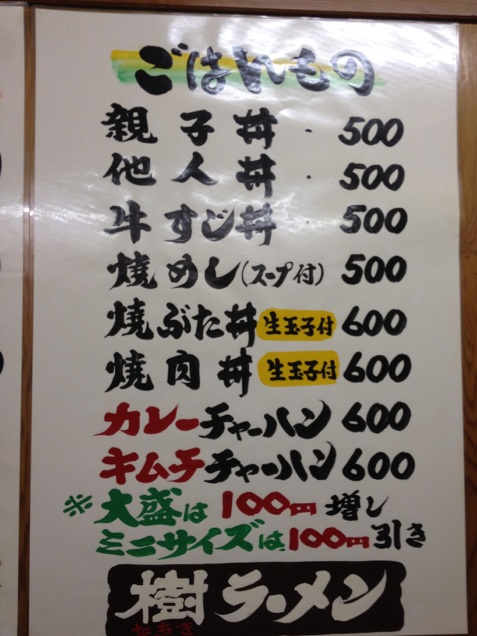 ごはんもの
親子丼・500
他人丼・500
牛すじ丼・500
焼めし(スープ付)500
焼ぶた丼 生玉子付 600
焼肉丼 生玉子付 600
カレーチャーハン 600
キムチチャーハン 600
※大盛は100円増し
ミニサイズは100円引き
樹ラーメン
たちき